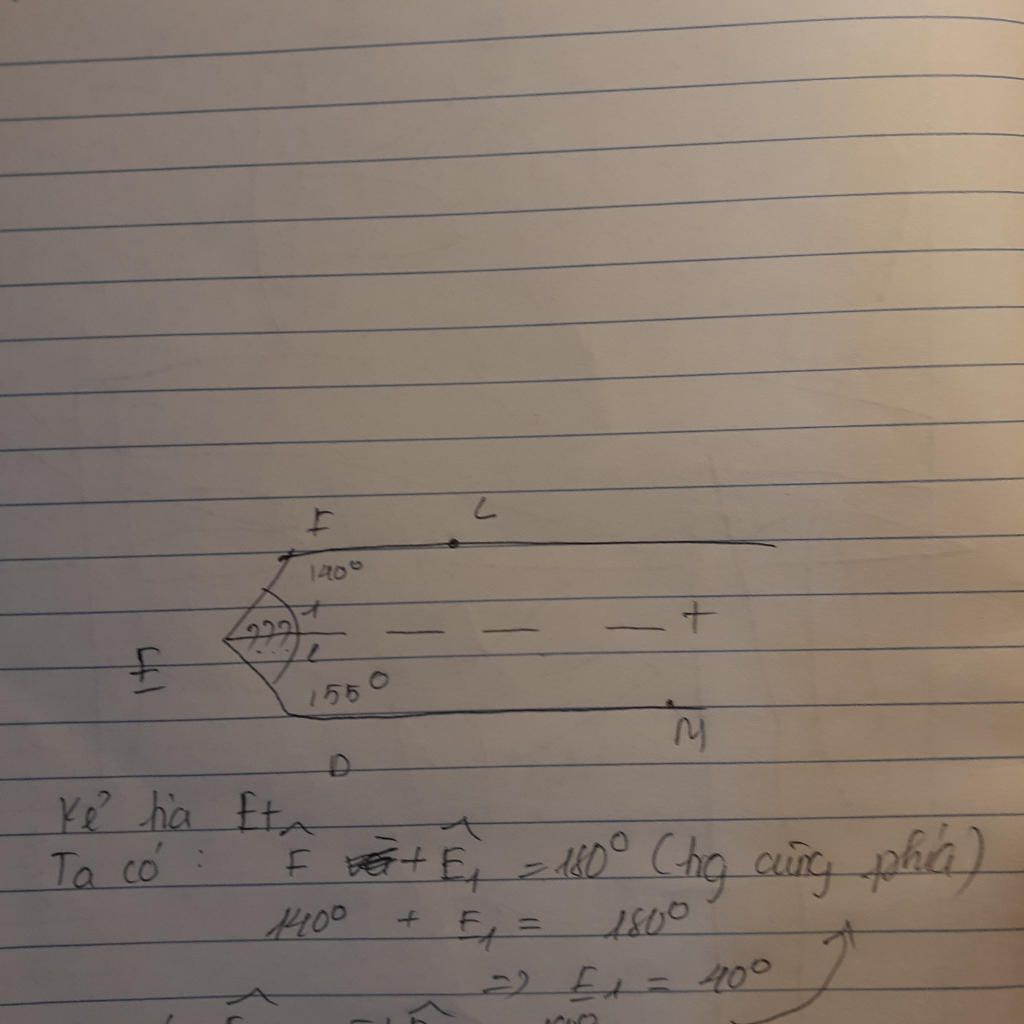 F L
140°
1
??? t
2
E 155°
M
D
Kẻ tia Et
Ta có : F̂ + Ê₁ = 180° (trg cùng phía)
140° + E₁ = 180°
=> E₁ = 40°